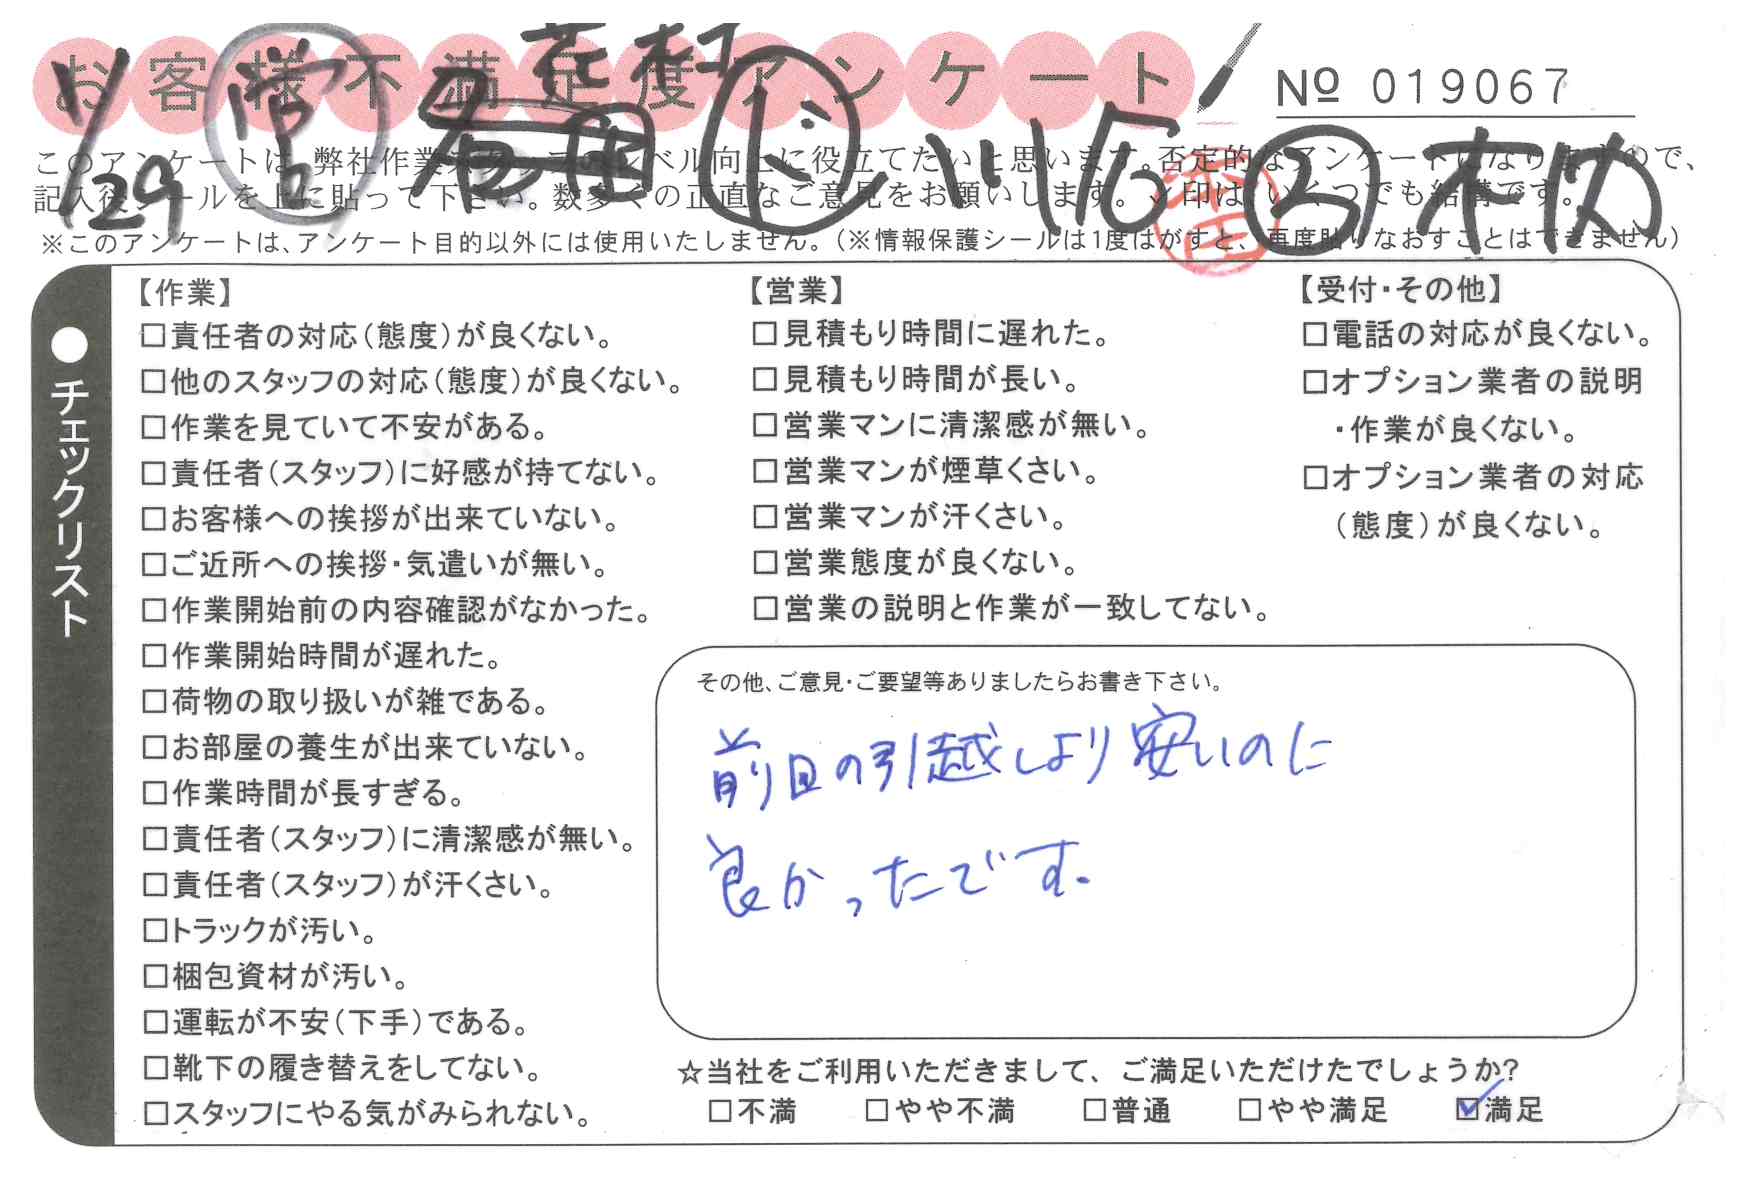 お客様不満足度アンケート
№ 019067
11/29
このアンケートは、弊社作業スタッフのレベル向上に役立てたいと思います。否定的なアンケートになりますので、
記入後シールを上に貼って下さい。数多くの正直なご意見をお願いします。✓印は、いくつでも結構です。
※このアンケートは、アンケート目的以外には使用いたしません。（※情報保護シールは1度はがすと、再度貼りなおすことはできません）
●チェックリスト
【作業】
□責任者の対応（態度）が良くない。
□他のスタッフの対応（態度）が良くない。
□作業を見ていて不安がある。
□責任者（スタッフ）に好感が持てない。
□お客様への挨拶が出来ていない。
□ご近所への挨拶・気遣いが無い。
□作業開始前の内容確認がなかった。
□作業開始時間が遅れた。
□荷物の取り扱いが雑である。
□お部屋の養生が出来ていない。
□作業時間が長すぎる。
□責任者（スタッフ）に清潔感が無い。
□責任者（スタッフ）が汗くさい。
□トラックが汚い。
□梱包資材が汚い。
□運転が不安（下手）である。
□靴下の履き替えをしてない。
□スタッフにやる気がみられない。
【営業】
□見積もり時間に遅れた。
□見積もり時間が長い。
□営業マンに清潔感が無い。
□営業マンが煙草くさい。
□営業マンが汗くさい。
□営業態度が良くない。
□営業の説明と作業が一致してない。
【受付・その他】
□電話の対応が良くない。
□オプション業者の説明
・作業が良くない。
□オプション業者の対応
（態度）が良くない。
その他、ご意見・ご要望等ありましたらお書き下さい。
前回の引越しより安いのに
良かったです．
☆当社をご利用いただきまして、ご満足いただけたでしょうか？
□不満 □やや不満 □普通 □やや満足 ☑満足